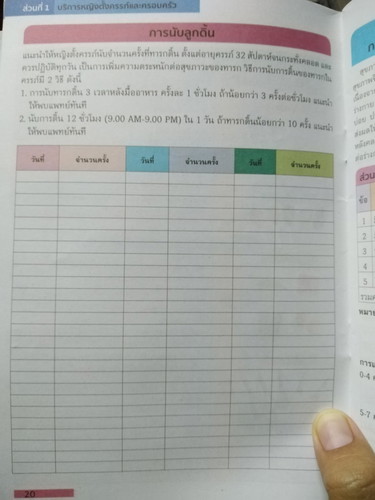 ส่วนที่ 1 บริการหญิงตั้งครรภ์และครอบครัว
การนับลูกดิ้น
แนะนำให้หญิงตั้งครรภ์นับจำนวนครั้งที่ทารกดิ้น ตั้งแต่อายุครรภ์ 32 สัปดาห์จนกระทั่งคลอด และ
ควรปฏิบัติทุกวัน เป็นการเพิ่มความตระหนักต่อสุขภาวะของทารก วิธีการนับการดิ้นของทารกใน
ครรภ์มี 2 วิธี ดังนี้
1. การนับทารกดิ้น 3 เวลาหลังมื้ออาหาร ครั้งละ 1 ชั่วโมง ถ้าน้อยกว่า 3 ครั้งต่อชั่วโมง แนะนำ
ให้พบแพทย์ทันที
2. นับการดิ้น 12 ชั่วโมง (9.00 AM-9.00 PM) ใน 1 วัน ถ้าทารกดิ้นน้อยกว่า 10 ครั้ง แนะนำ
ให้พบแพทย์ทันที
วันที่ จำนวนครั้ง วันที่ จำนวนครั้ง วันที่ จำนวนครั้ง
20
ส่วน
ข้อ
1
2
3
4
5
0-4
5-7